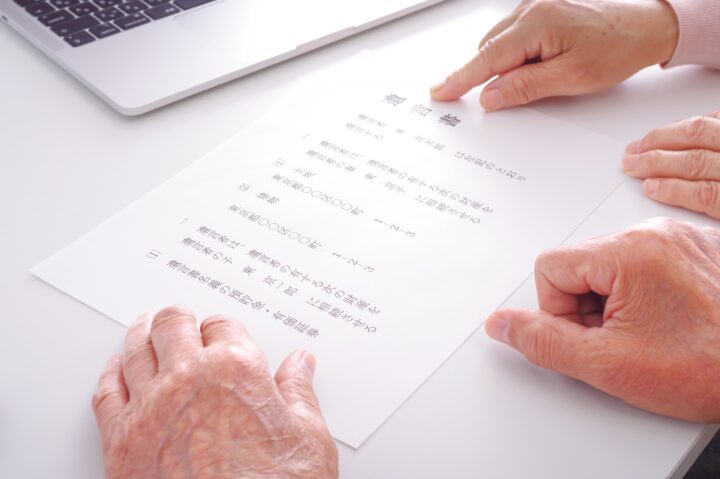 遺言書
遺言者 東 京太郎 は左記のとおり
遺言する
一
遺言者は、遺言者の有する次の財産を
遺言者の妻 東 京子 に相続させる
(1) 土地
東京都〇〇区〇〇町 1-2-3
(2) 建物
東京都〇〇区〇〇町 1-2-3
一
遺言者は、遺言者の有する次の財産を
遺言者の子 東 京一郎 に相続させる
(1) 遺言書名義の預貯金・有価証券